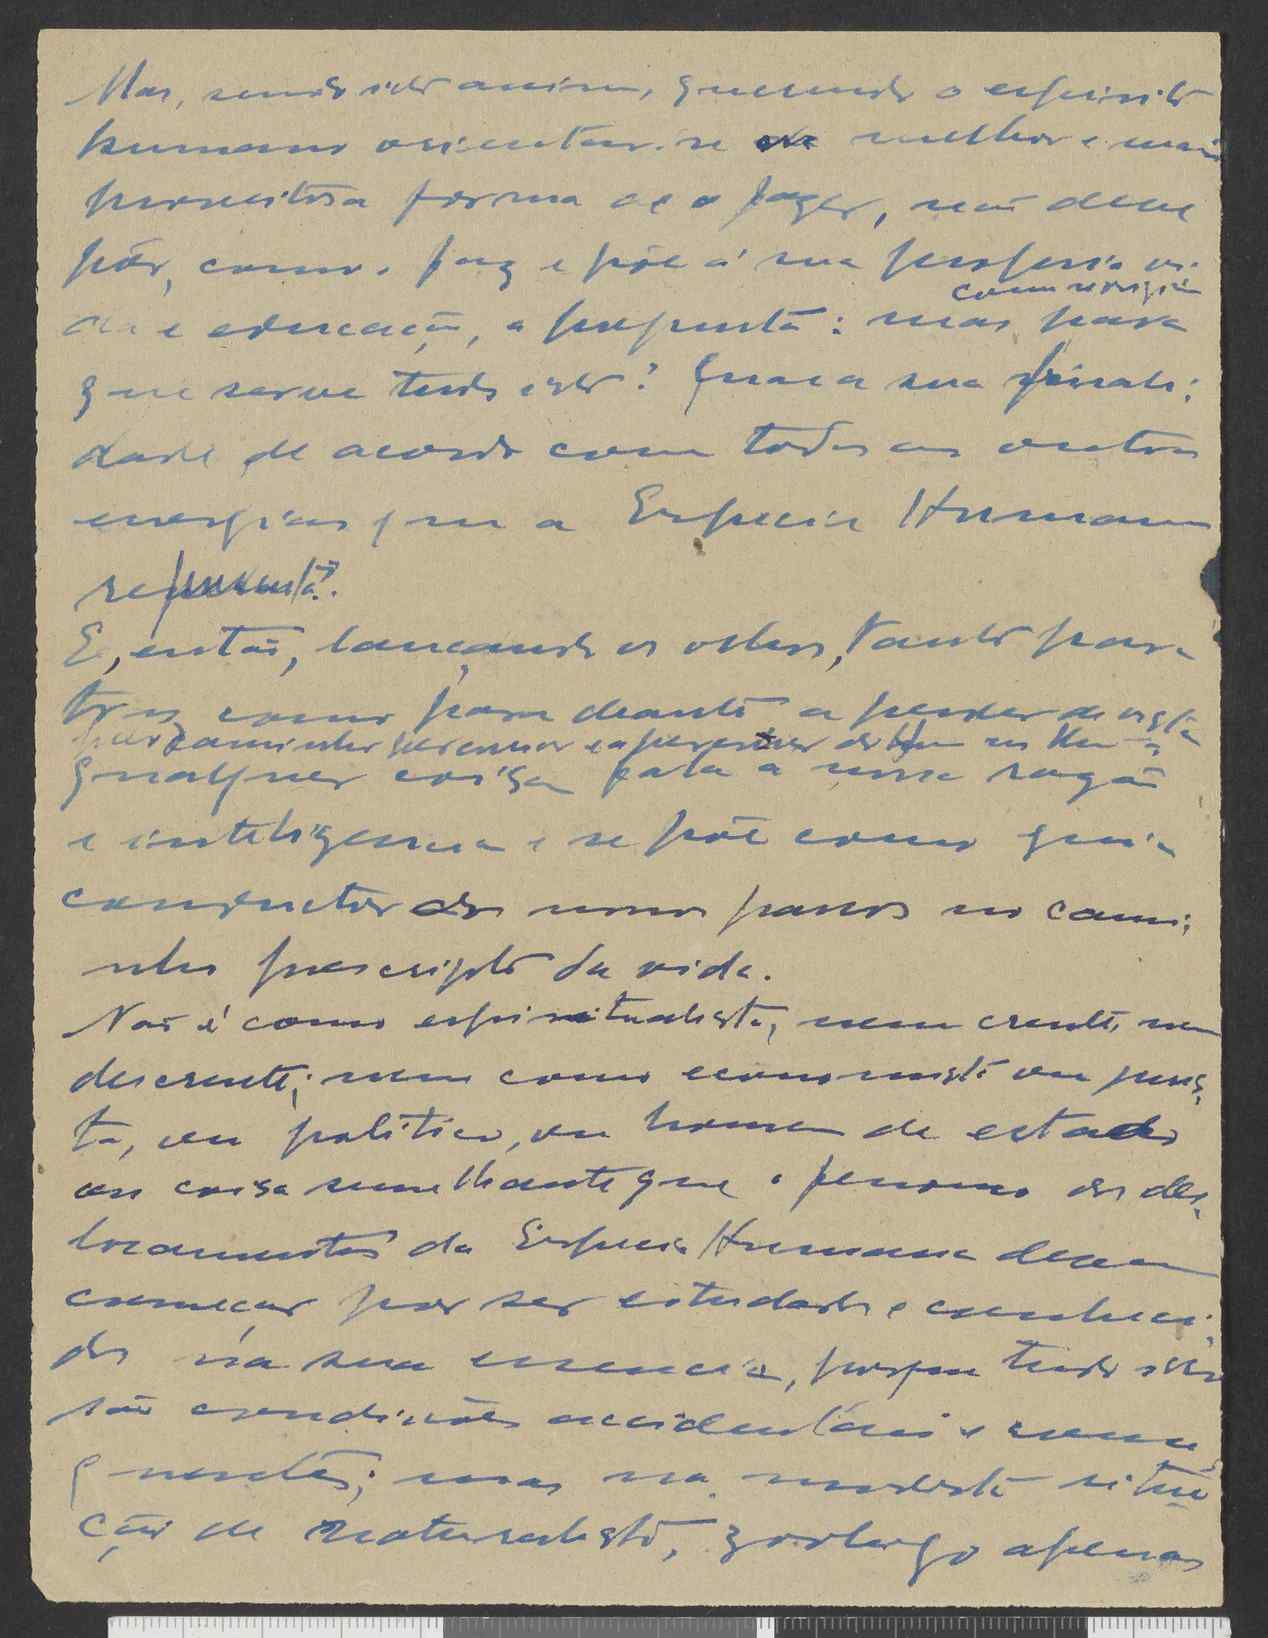 Mas, sendo isto assim, querendo o espirito
humano orientar-se da melhor e mais
proveitosa forma de o fazer, não deve
pôr, como o faz e põe á sua propria vi-
da e educação, a pergunta: mas para
que serve tudo isto? Qual a sua finali-
dade de acordo com todas as outras
energias que a Especie Humana
representa?
E, então, lançando os olhos, tanto para
traz como para deante a perder de vista
qualquer coisa fala á nossa razão
e inteligencia e se põe como guia
conductor dos nossos passos no cami-
nho prescripto da vida.
Não é como espiritualista, nem crente, nem
descrente; nem como economista ou juris-
ta, ou politico, ou homem de estado
ou coisa semelhante que o fenomeno dos des-
locamentos da Especie Humana devem
começar por ser estudados e conheci-
dos na sua essencia, porque tudo isto
são condições accidentais e conse-
quentes; mas na modesta situa-
ção de naturalista, zoologo apenas